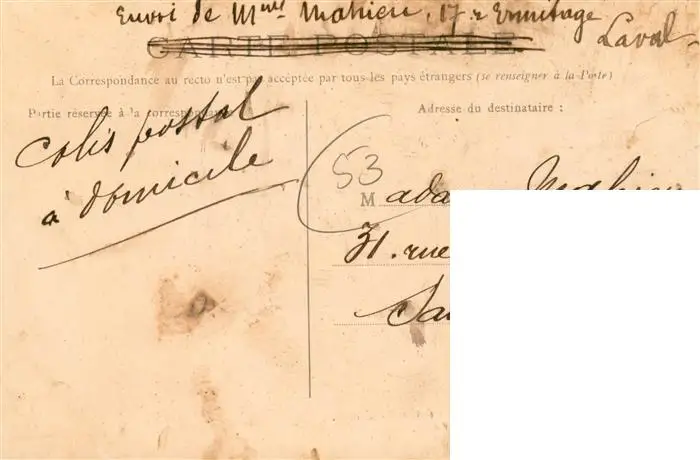 Envoi de Mme Mahieu, 17 r Ermitage
Laval
CARTE POSTALE.
La Correspondance au recto n'est pas acceptée par tous les pays étrangers (se renseigner à la Poste)
Partie réservée à la correspondance
Adresse du destinataire :
Colis postal
à domicile
53
Mada Mahieu
31. rue